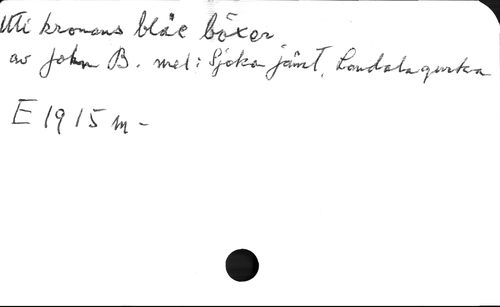 Uti kronans blåe böxer
av John B. mel: Sjökon jämt, Landala gurka
E 1915 m -